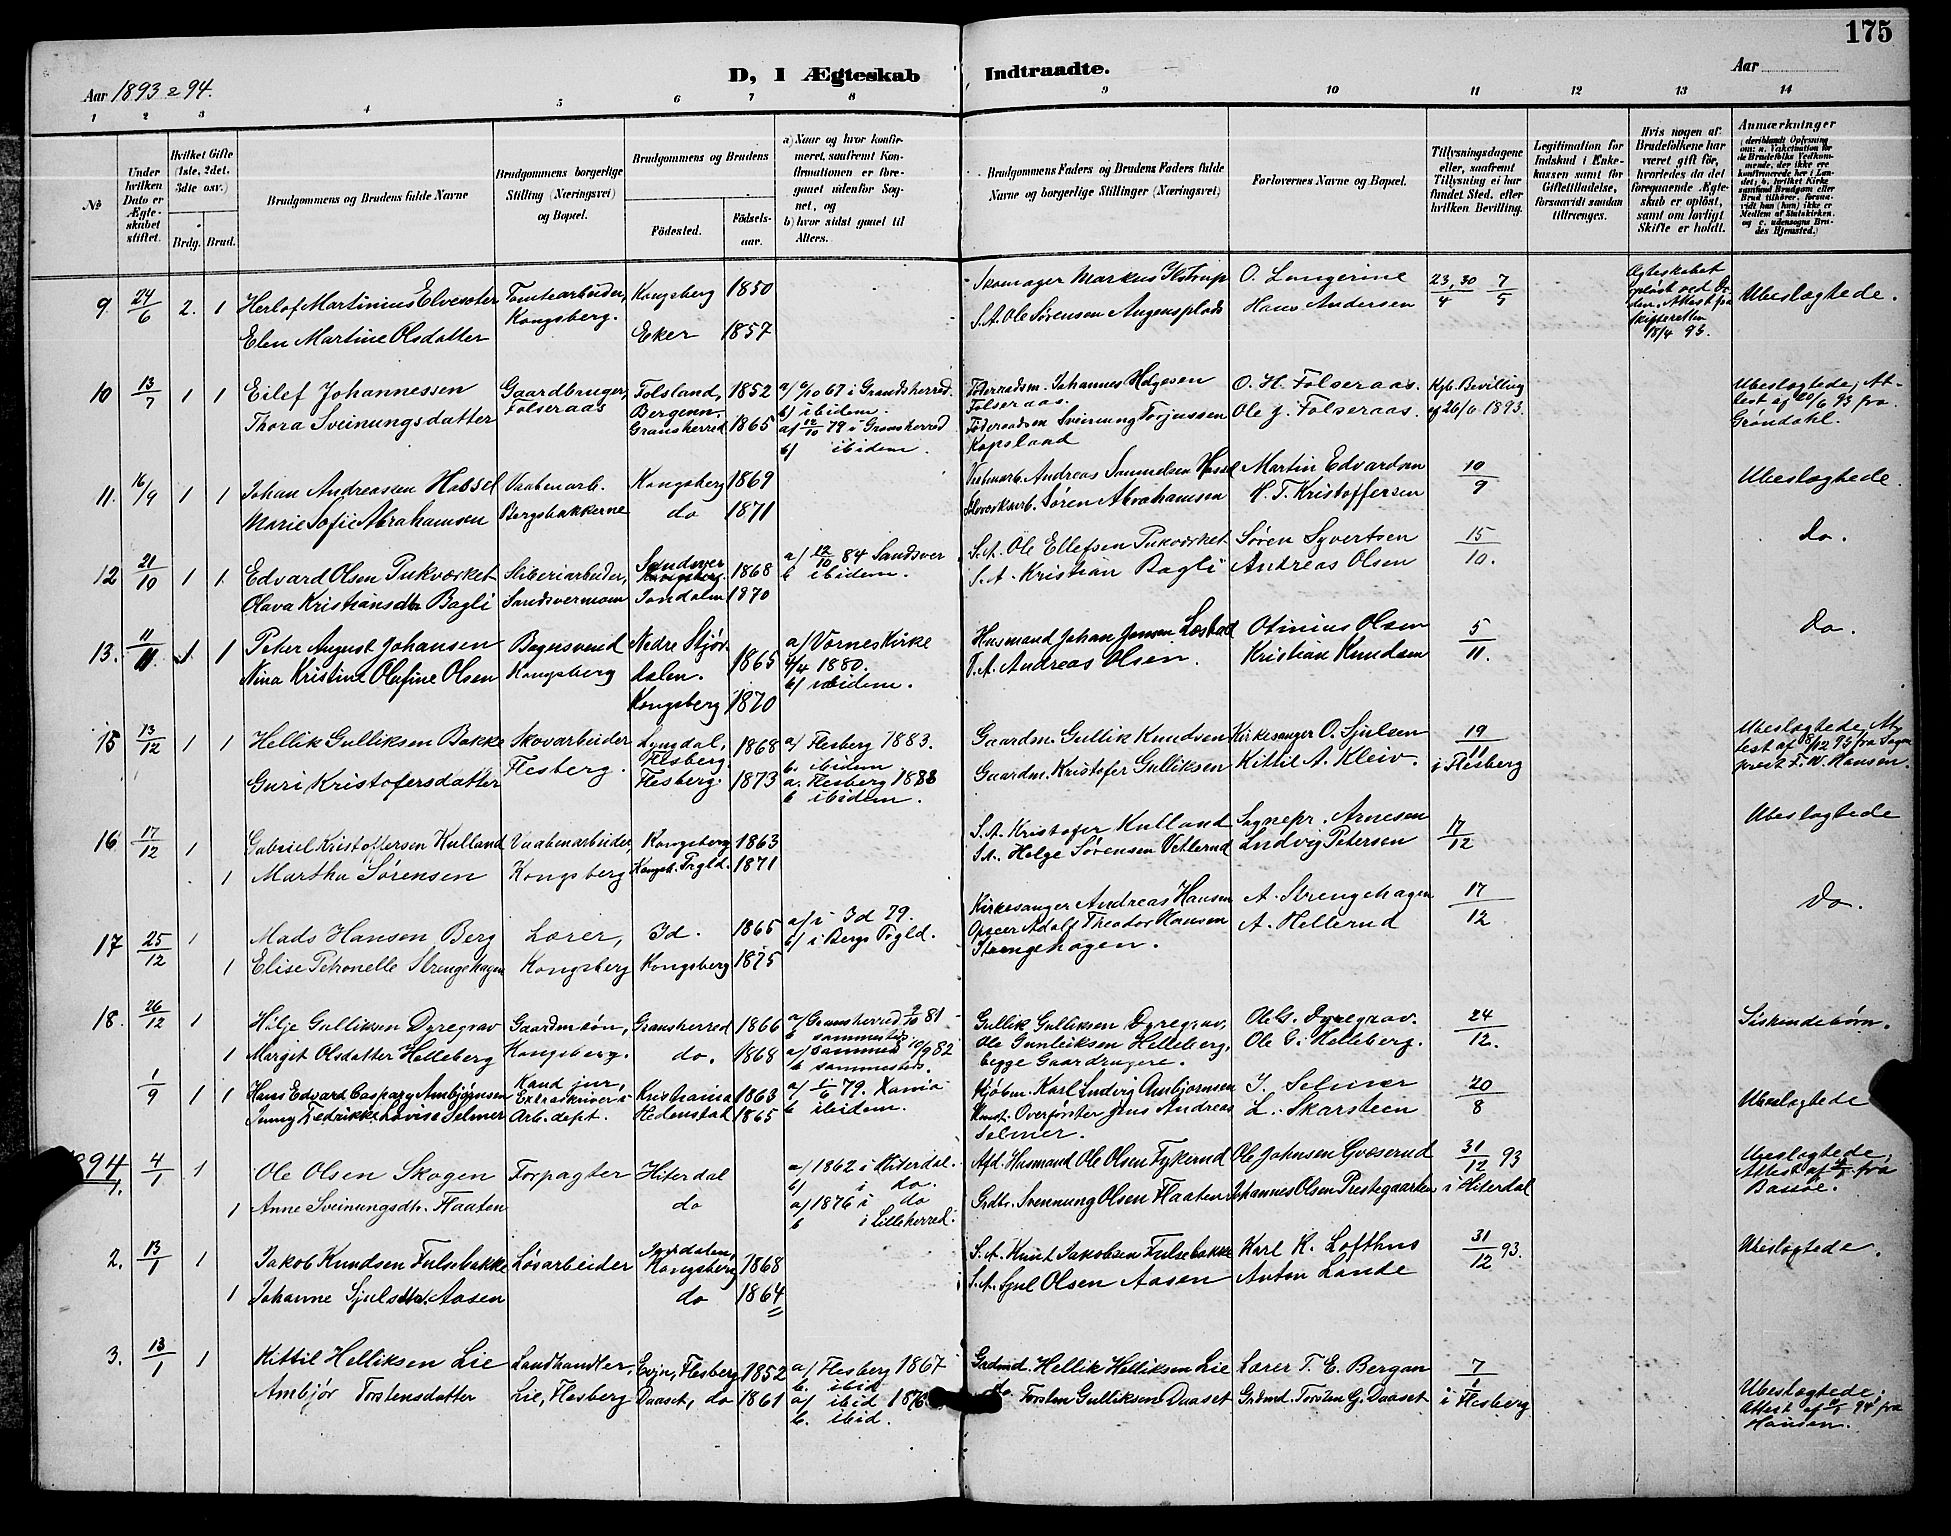 175
D, I Ægteskab Indtraadte.
Aar 1893 & 94.
Aar
1 2 3 4 5 6 7 8 9 10 11 12 13 14
No
Under hvilken Dato er Ægteskabet stiftet.
Hvilket Gifte (1ste, 2det, 3die osv.)
Brdg. Brud.
Brudgommens og Brudens fulde Navne
Brudgommens borgerlige Stilling (Næringsvei) og Bopæl.
Brudgommens og Brudens
Födested. Födsels-aar.
a) Naar og hvor konfirmeret, saafremt Konfirmationen er foregaaet udenfor Sognet, og
b) hvor sidst gaaet til Alters.
Brudgommens Faders og Brudens Faders fulde Navne og borgerlige Stillinger (Næringsvei)
Forlovernes Navne og Bopæl.
Tillysningsdagene eller, saafremt Tillysning ei har fundet Sted, efter hvilken Bevilling.
Legitimation for Indskud i Enkekassen samt for Giftetilladelse, forsaavidt saadan tiltrænges.
Hvis nogen af Brudefolkene har været gift för, hvorledes da det foregaaende Ægteskab er oplöst, samt om lovligt Skifte er holdt.
Anmærkninger
9. 24/6 2. 1 Herlof Martinius Elveseter Tomtearbeider, Kongsberg 1850 Skomager Markus O. Langerine 23, 30/4 7/5 Ubeslægtede.
Kongsberg.
Elen Martine Olsdatter Eker 1857 S.A. Ole Sørensen Hans Andersen
10 13/7 1 1 Eilef Johannessen Gaardbruger, Folsland, 1852 i Gransherred Føderaadsm. Johannes O. H. Folseraas. Kgl. Bevilling Ubeslægtede, At-
Folseraas Bergenn. b/ ibidem. Folseraas. af 26/6 1893. test af 20/6 93 fra
Thora Sveinungsdatter Gransherred 1865 a/ 12/10 79 i Gransherred Føderaadsm Sveinung Torjussen Ole J. Folseraas. Grøndahl.
b/ ibidem. Kopsland
11. 16/9 1 1 Johan Andreassen Hassel Vaabenarb. Kongsberg 1869 Andreas Samuelsen Hassel Martin Edvardsen 10/9 Ubeslægtede.
Marie Sofie Abrahamsen Bergsbakkerne do 1871 Søren Abrahamsen H. T. Kristoffersen
12 21/10 1 1. Edvard Olsen Pukværket Sliberiarbeider, Sandsver 1868 a/ 12/10 84 Sandsver S.A. Ole Ellefsen Pukværket Søren Syvertsen 15/10. do.
b ibidem.
Olava Kristiansdtr Bagli Sandsvermoen Jondalen 1870 S.A. Kristian Bagli Andreas Olsen
13. 11/11. 1 1 Peter August Johansen Bagersvend Nedre Stjør- 1865 a/ Vornes Kirke Husmand Johan Jensen Otinius Olsen 5/11. do.
dalen. 4/4 1880.
Nina Kristine Olufine Olsen Kongsberg Kongsberg 1870 b/ ibidem. V.A. Andreas Olsen. Kristian Knudsen
15 13/12 1 1 Hellik Gulliksen Bakke Skovarbeider Lyngdal, 1868 a/ Flesberg 1883. Gaardm. Gullik Knudsen Kirkesanger O. Sjulsen 19/11 Ubeslægtede, At-
Flesberg. Flesberg. b. ibidem i Flesberg test af 8/12 93 fra Sogne-
Guri Kristofersdatter Flesberg. 1873 a. Flesberg 1888 Gaardm. Kristofer Gulliksen Kittil A. Kleiv. prest F. W. Hansen.
b ibidem.
16 17/12 1 Gabriel Kristoffersen Kulland Vaabenarbeider, Kongsberg 1863 S.A. Kristofer Kulland Sognepr. Arnesen 17/12 Ubeslægtede
1 Martha Sørensen Kongsberg Kongsb. Prgld. 1871 S.A. Helge Sørensen Vetterud Ludvig Petersen
17 25/12 1 Mads Hansen Berg Lærer, Id. 1865 a/ i Id 79. Kirkesanger Andreas Hansen A. Strengehagen 17/12 do.
b/ i Bergs Prgld.
1 Elise Petronelle Strengehagen Kongsberg Kongsberg 1875 Adolf Theodor Hansen A. Hellerud
Strengehagen.
18. 26/12 1 Hølje Gulliksen Dyregrav Gaardmsøn, Gransherred 1866 a/ Gransherred 9/10 81 Gullik Gulliksen Dyregrav, Ole G. Dyregrav. 24/12. Siskindebørn.
b sammesteds
1 Margit Olsdatter Helleberg Kongsberg. do. 1868 a/ sammesteds 10/9 82 Ole Gunleiksen Helleberg, Ole O. Helleberg.
b sammesteds. begge Gaardrugere.
1/9 1 1 Hans Edvard Caspary Ambjørnsen Kand jur, Kristiania 1863 a/ 1/6 79. Xania Kjøbm. Karl Ludvig Ambjørnsen J. Selmer 20/8 Ubeslægtede
Extraskriver i b ibidem.
Jenny Fredrikke Lovise Selmer Arb. dept. Hedenstad 1865 Konst. Overførster Jens Andreas L. Skarsteen
Selmer.
1894
1. 4/1 1 Ole Olsen Skogen Forpagter Hiterdal a/ 1862 i Hiterdal. Afd. Husmand Ole Olsen Tykerud Ole Johnsen Gvæserud 31/12 93 Ubeslægtede,
b/ i do. i Hiterdal Attest af 2/1 fra
1 Anne Sveinungsdtr. Flaaten do a/ 1876 i do Grdbr. Svennung Olsen Flaaten Johannes Olsen Prestegaarden Bassøe.
b i Lilleherred.
2. 13/1 1 Jakob Knudsen Fulsebakke Løsarbeider Jondalen, Kongsberg 1868 S.A. Knut Jakobsen Fulsebakke Karl K. Lofthus 31/12 93. Ubeslægtede.
1 Johanne Sjulsdtr. Aasen do 1864 S.A. Sjul Olsen Aasen Anton Lande
3. 13/1 1 Kittil Helliksen Lie Landhandler, Evju, Flesberg 1852 a/ Flesberg 1867 Grdmd. Hellik Helliksen Lie Lærer T. E. Bergan 7/1
b. ibid i Flesberg
Ambjør Torstensdatter Lie, Flesberg Daaset, do 1861 a/ ibid do Torsten Gulliksen Daaset Grdmd. Torsten G. Daaset Ubeslægtede;
b. ibid. Attest af 94 fra
Hansen.